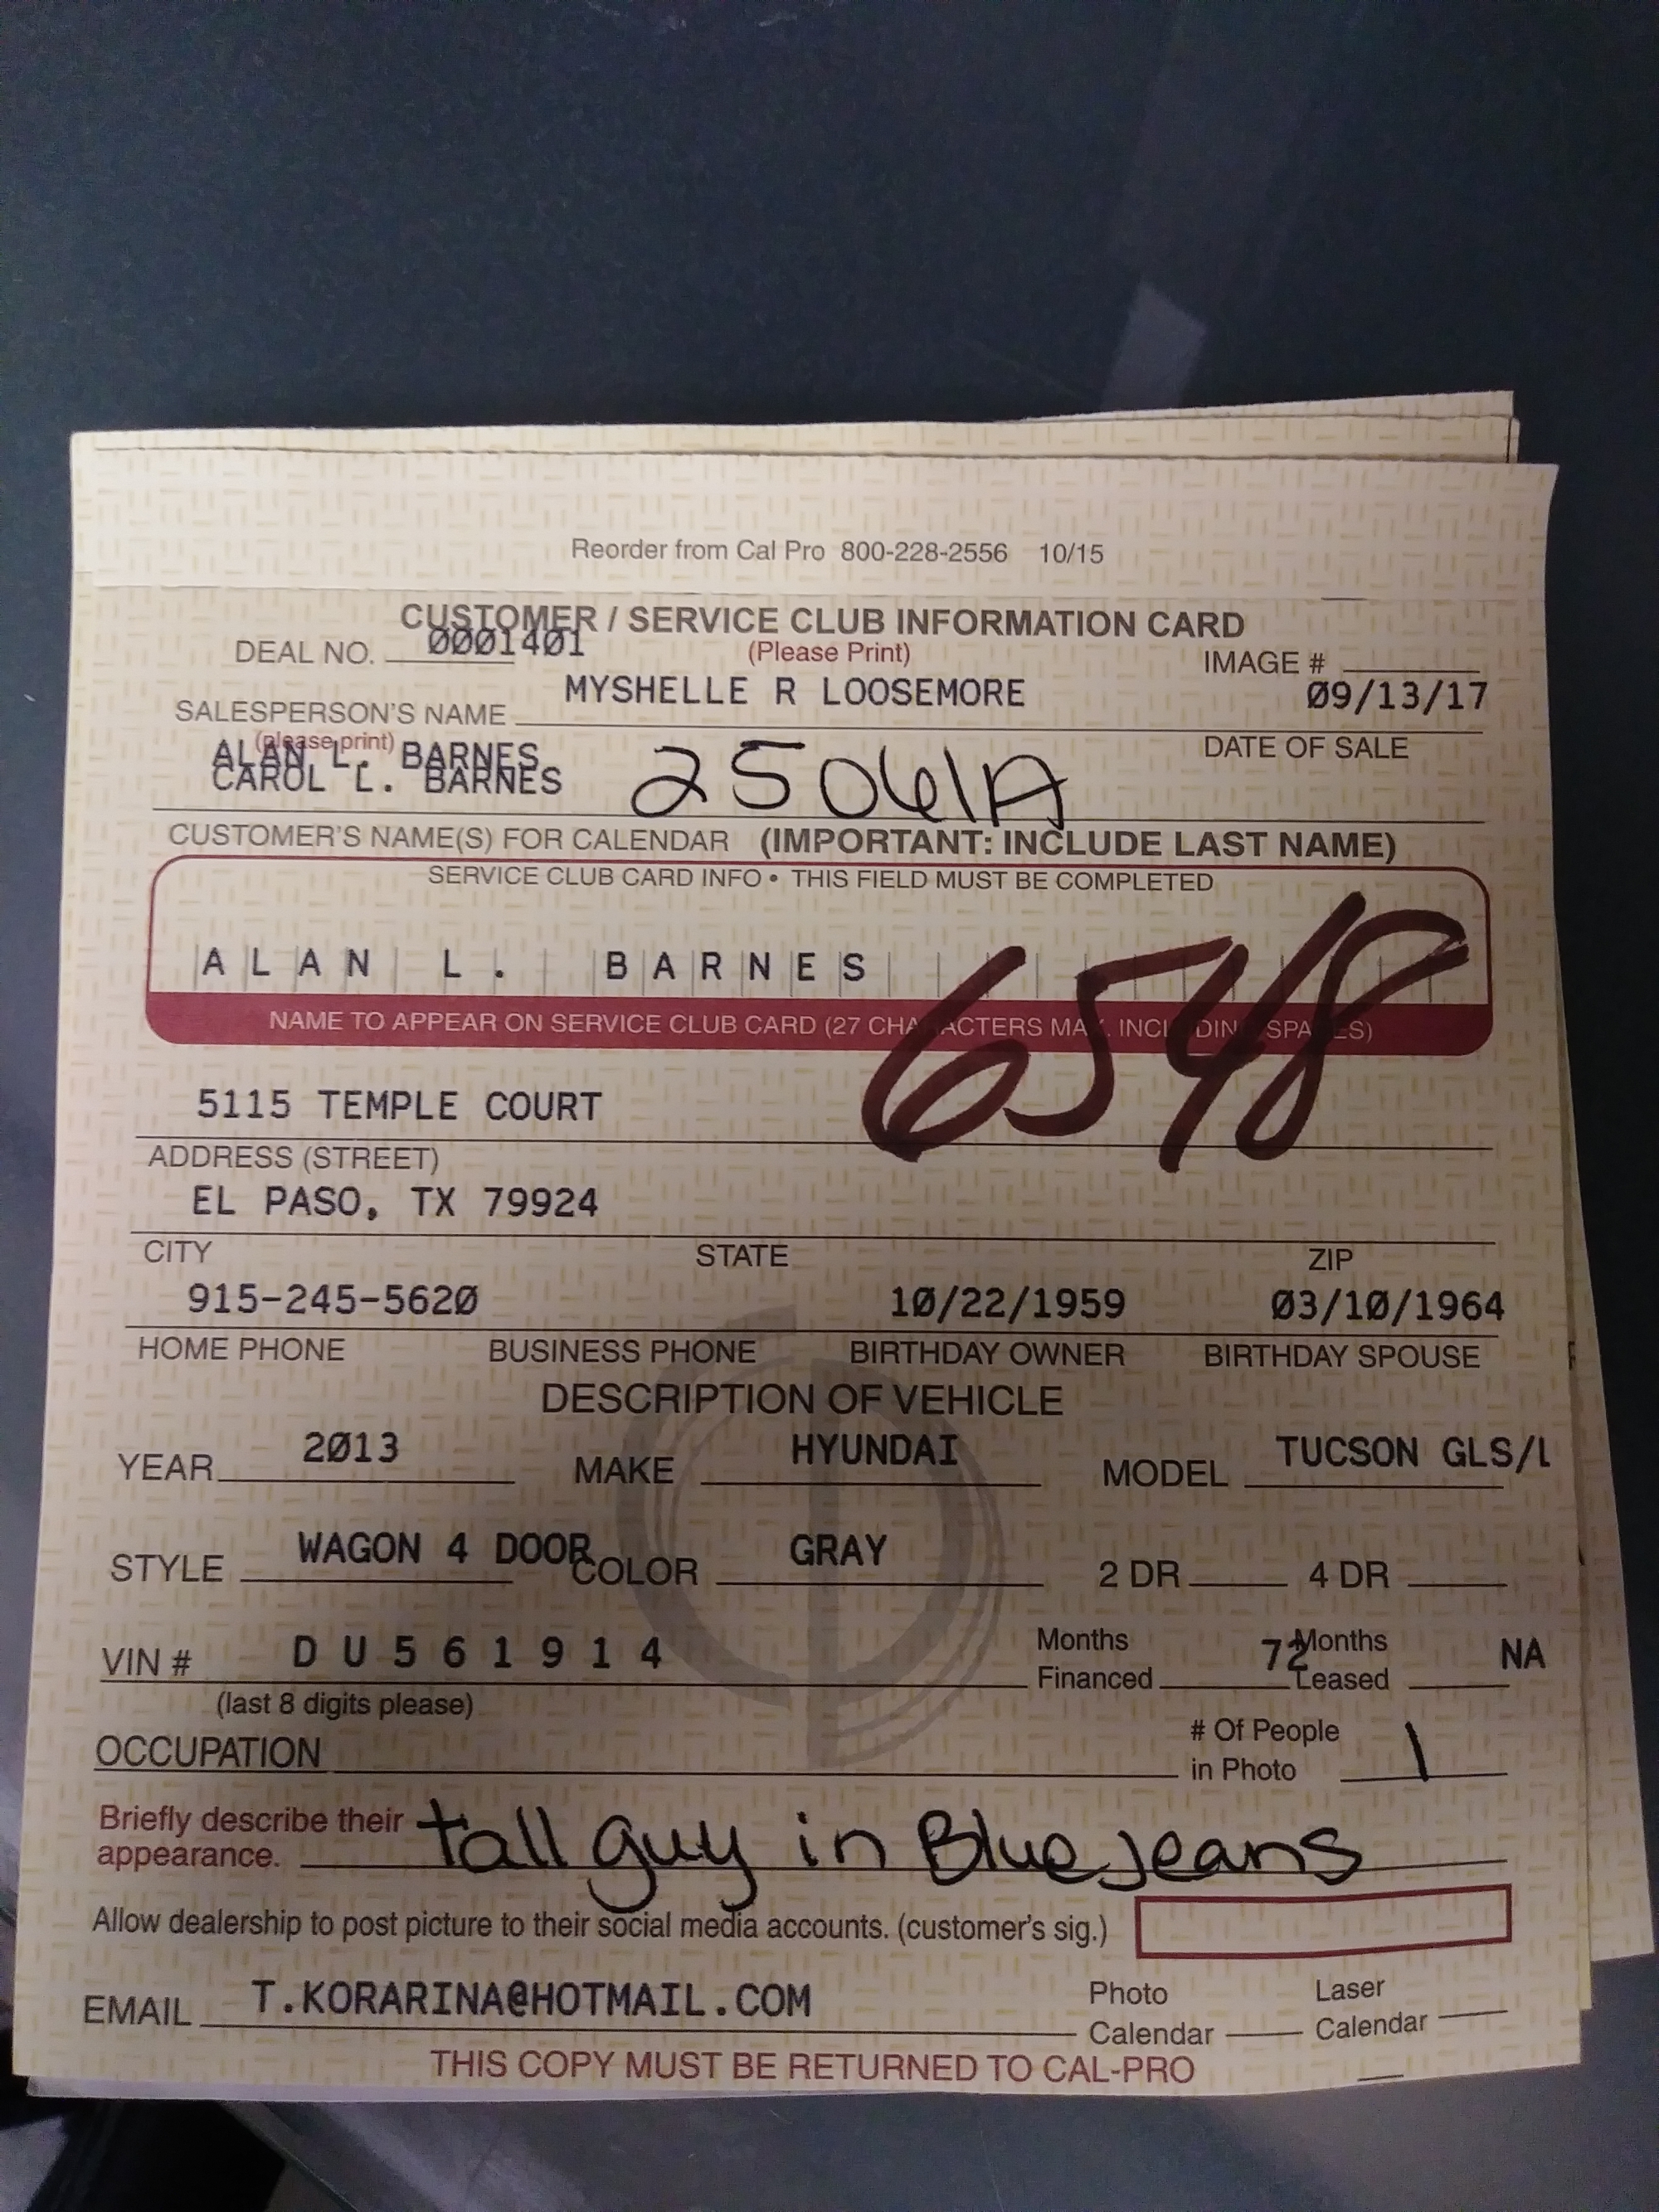 Reorder from Cal Pro 800-228-2556 10/15
CUSTOMER / SERVICE CLUB INFORMATION CARD
DEAL NO. 0001401 (Please Print) IMAGE #
SALESPERSON'S NAME MYSHELLE R LOOSEMORE 09/13/17
(please print) DATE OF SALE
ALAN L. BARNES
CAROL L. BARNES 25061A
CUSTOMER'S NAME(S) FOR CALENDAR (IMPORTANT: INCLUDE LAST NAME)
SERVICE CLUB CARD INFO • THIS FIELD MUST BE COMPLETED
ALAN L. BARNES 6548
NAME TO APPEAR ON SERVICE CLUB CARD (27 CHARACTERS MAX. INCLUDING SPACES)
5115 TEMPLE COURT
ADDRESS (STREET)
EL PASO, TX 79924
CITY STATE ZIP
915-245-5620 10/22/1959 03/10/1964
HOME PHONE BUSINESS PHONE BIRTHDAY OWNER BIRTHDAY SPOUSE
DESCRIPTION OF VEHICLE
YEAR 2013 MAKE HYUNDAI MODEL TUCSON GLS/L
STYLE WAGON 4 DOOR COLOR GRAY 2 DR 4 DR
VIN # DU561914 Months Financed 72 Months Leased NA
(last 8 digits please)
OCCUPATION # Of People in Photo 1
Briefly describe their appearance. tall guy in Blue jeans
Allow dealership to post picture to their social media accounts. (customer's sig.)
EMAIL T.KORARINA@HOTMAIL.COM Photo Calendar Laser Calendar
THIS COPY MUST BE RETURNED TO CAL-PRO